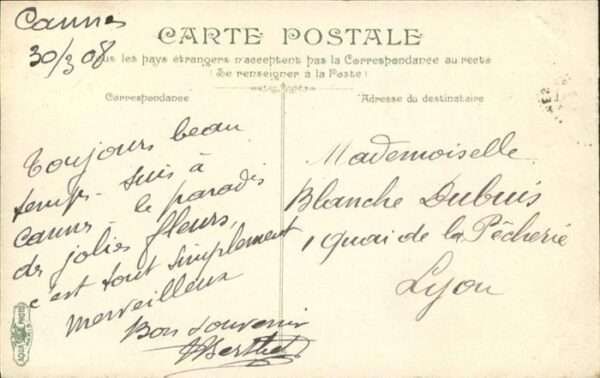 Cannes
30/3 08
CARTE POSTALE
us les pays étrangers n'acceptent pas la Correspondance au recto
(Se renseigner à la Poste)
Correspondance
Toujours beau
temps - suis à
Cannes - le paradis
des jolies fleurs,
c'est tout simplement
merveilleux
Bon souvenir
Berthet
Adresse du destinataire
Mademoiselle
Blanche Dubuis
1 Quai de la Pêcherie
Lyon
AQUA PHOTO
PARIS